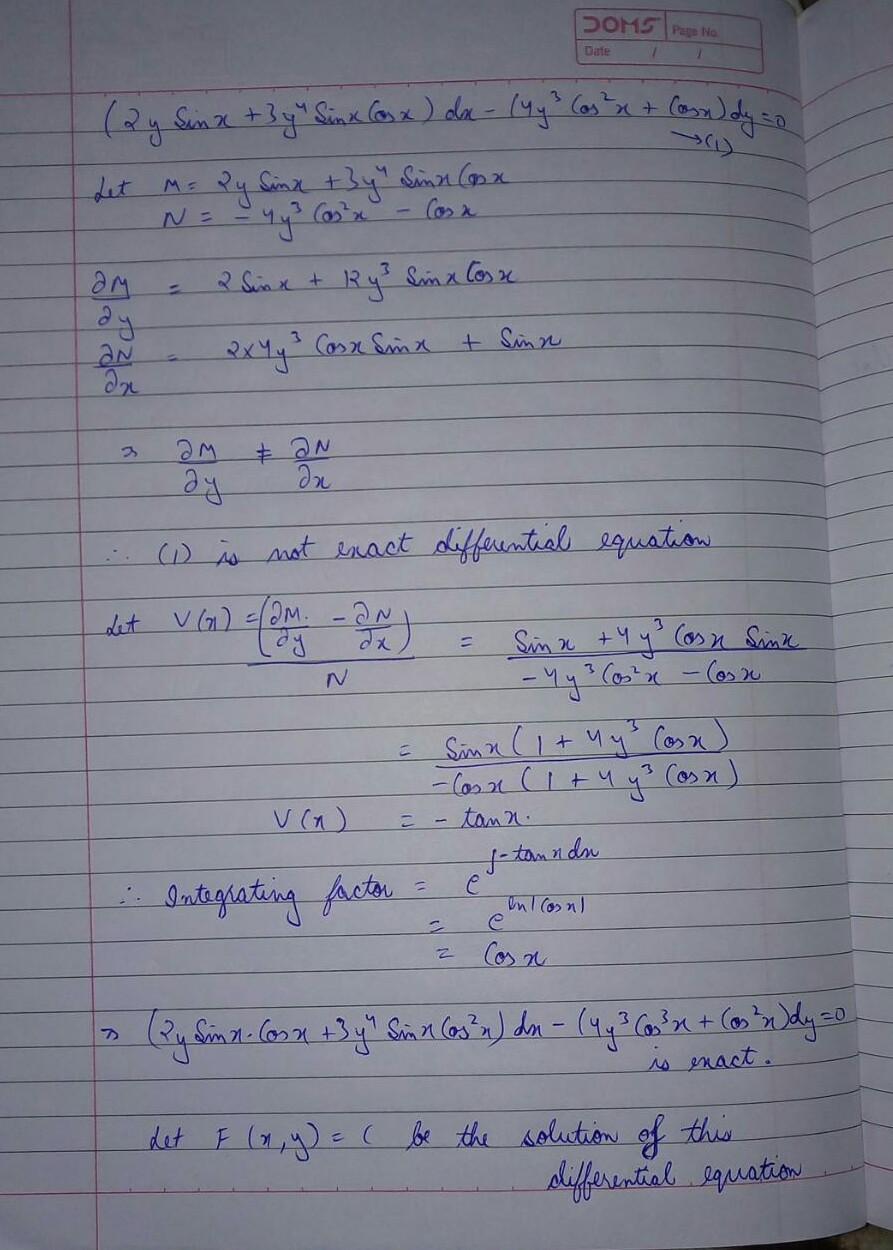 DOMS Page No.
Date / /
(2y Sinx + 3y⁴ Sinx Cosx) dx - (4y³ Cos²x + Cosx) dy = 0
→ (1)
Let M = 2y Sinx + 3y⁴ Sinx Cosx
N = - 4y³ Cos²x - Cosx
∂M/∂y = 2 Sinx + 12y³ Sinx Cosx
∂N/∂x = 2×4y³ Cosx Sinx + Sinx
⇒ ∂M/∂y ≠ ∂N/∂x
∴ (1) is not exact differential equation
Let V(x) = (∂M/∂y - ∂N/∂x)/N = (Sinx + 4y³ Cosx Sinx)/(-4y³ Cos²x - Cosx)
= Sinx (1 + 4y³ Cosx)/-Cosx (1 + 4y³ Cosx)
V(x) = - tanx.
∴ Integrating factor = e^∫-tanx dx
= e^ln|Cosx|
= Cosx
⇒ (2y Sinx. Cosx + 3y⁴ Sinx Cos²x) dx - (4y³ Cos³x + Cos²x) dy = 0
is exact.
Let F(x,y) = C be the solution of this
differential equation